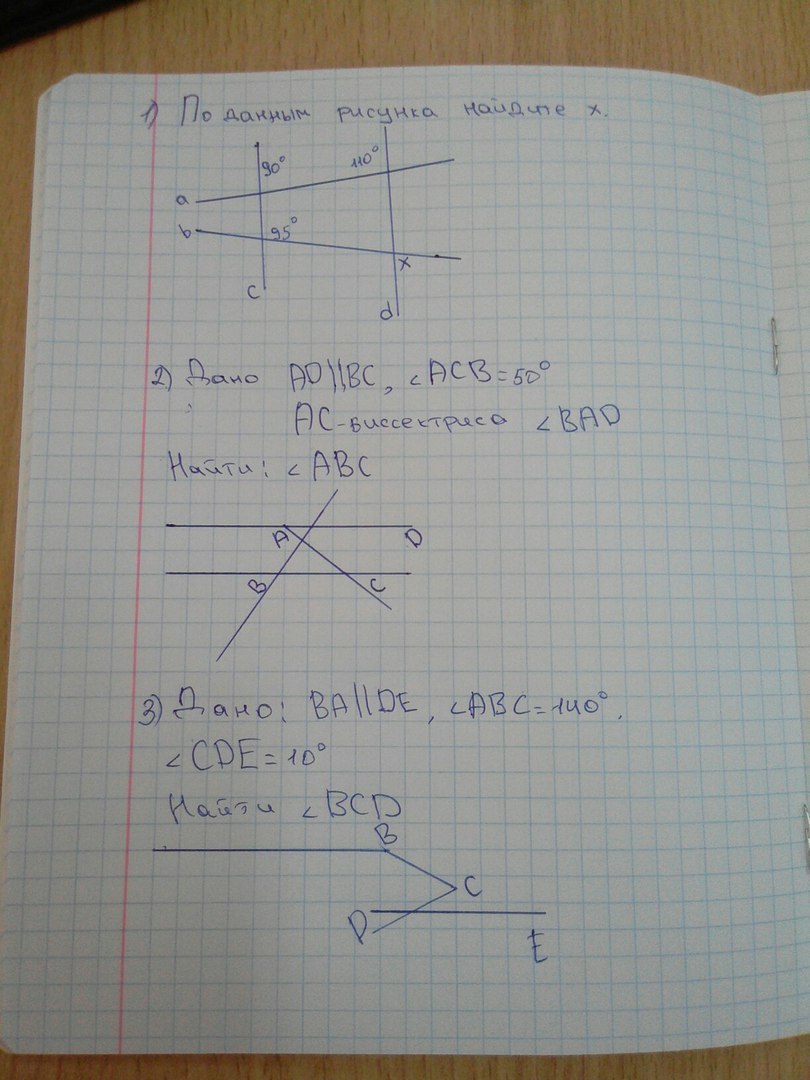 1) По данным рисунка найдите x.
90° 110°
a
b 95°
x
c
d
2) Дано AD||BC, ∠ACB=50°
AC-биссектриса ∠BAD
Найти: ∠ABC
A D
B C
3) Дано: BA||DE, ∠ABC=140°,
∠CDE=10°
Найти ∠BCD
B
C
D
E